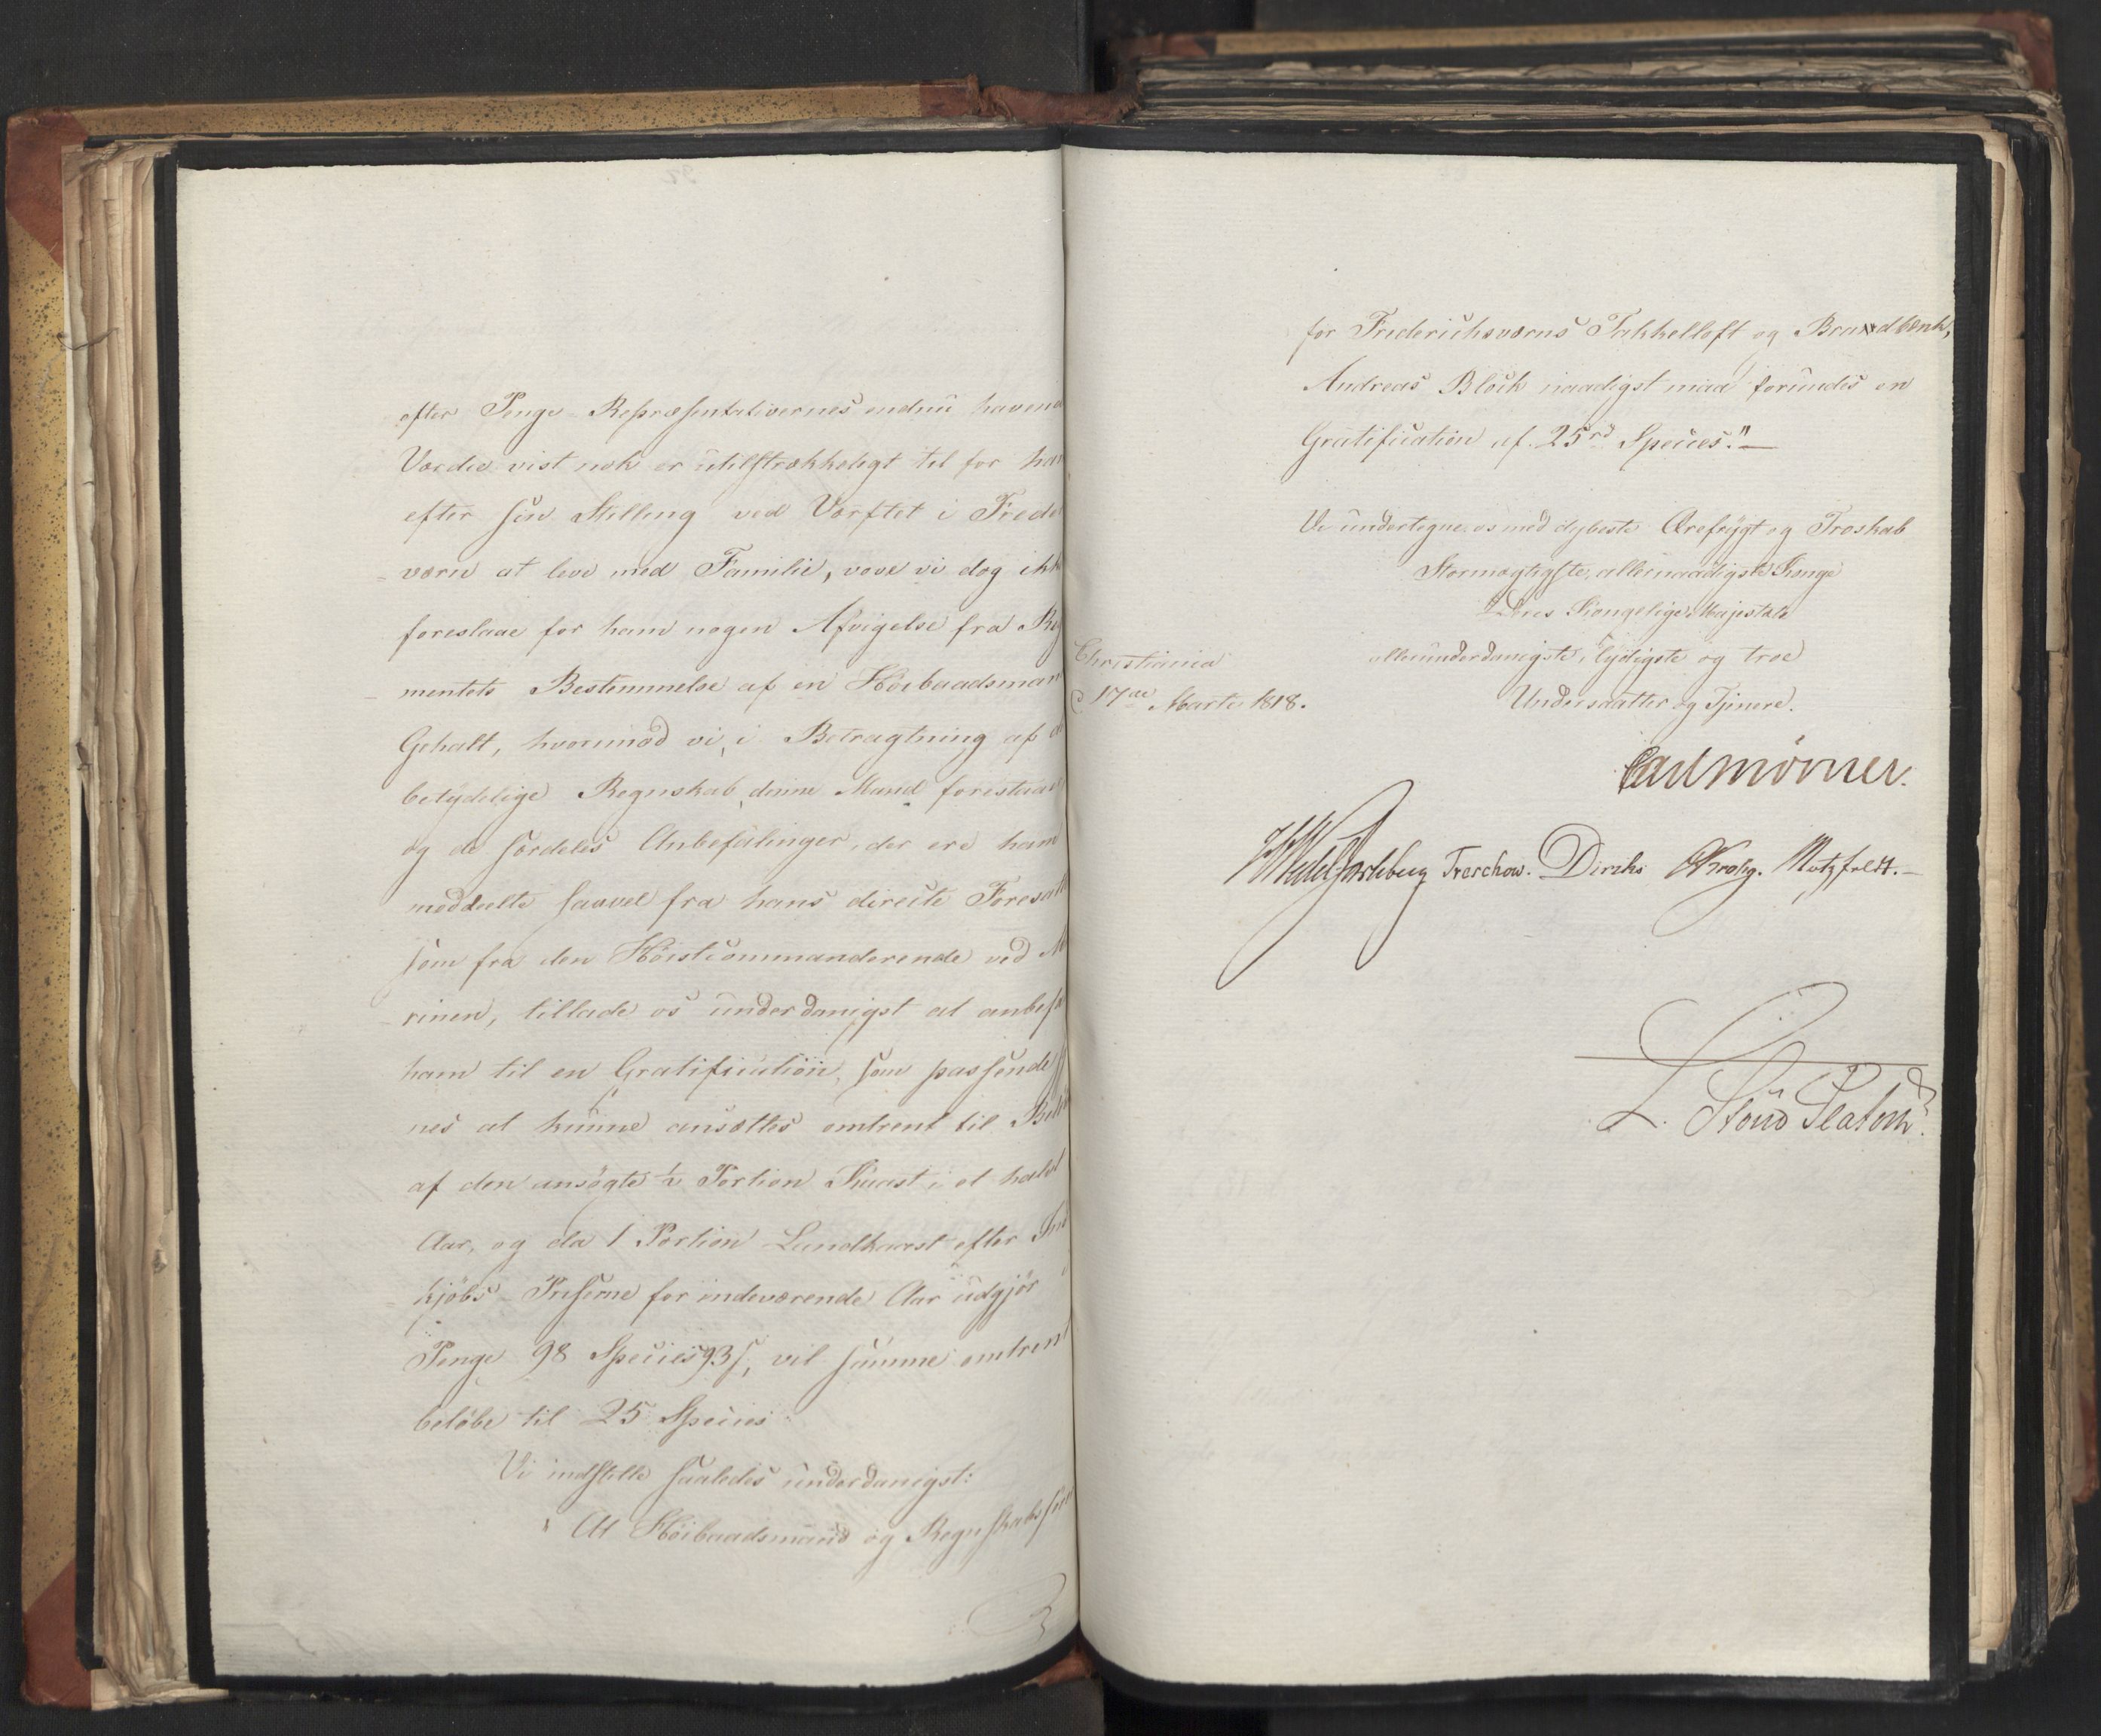 efter Penge-Repræsentativernes endnu havend
Værdie vist nok er utilstrækkeligt til for ham
efter sin Stilling ved Værftet i Frede
-værn at leve med Familie, vove vi dog ikke
foreslaae for ham nogen Afvigelse fra Reg
-mentets Bestemmelse af en Höibaadsmand
Gehalt, hvorimod vi, i Betragtning af
betydelige Regnskab denne Mand forestaae
og de særdeles Anbefalinger, der ere ham
meddeelte saavel fra hans directe Foresatte
som fra den Höistcommanderende ved Ma
-rinen, tillade os underdanigst at anbefa
ham til en Gratification, som passende sy
nes at kunne ansættes omtrent til Belöb
af den ansögte ½ Portion Kaast i et halvt
Aar, og da 1 Portion Landkaast efter Ind
-kjöbs-Priserne for indeværende Aar udgjör i
Penge 98 Species 93 s, vil Summe omtrent
belöbe til 25 Species.
Vi indstille saaledes underdanigst:
"At Höibaadsmand og Regnskabsför
for Frederichsværns Takkelloft og Brandbænk,
Andreas Block naadigst maa forundes en
Gratification af 25rd Species."—
Vi undertegne os med dybeste Ærefrygt og Troskab
Stormægtigste, allernaadigste Konge
Deres Kongelige Majestæts
allerunderdanigste, lydigste og troe
Undersaatter og Tjenere.
Christiania
d. 17de Marts 1818.
Carl Mörner.
HWedel Jarlsberg Treschow. Diriks Krohg. Motzfeldt.—
L. Stoud Platou